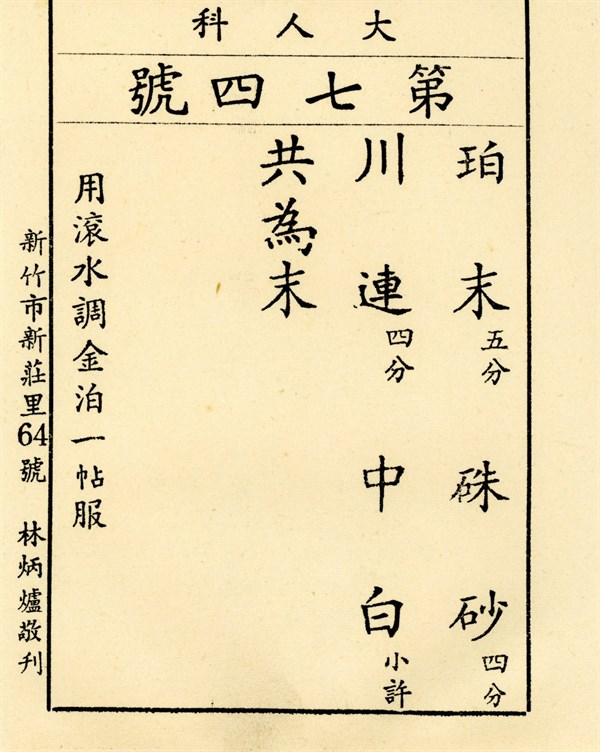 大人科
第七四號
珀末五分 硃砂四分
川連四分 中白小許
共為末
用滾水調金泊一帖服
新竹市新莊里64號 林炳爐敬刊